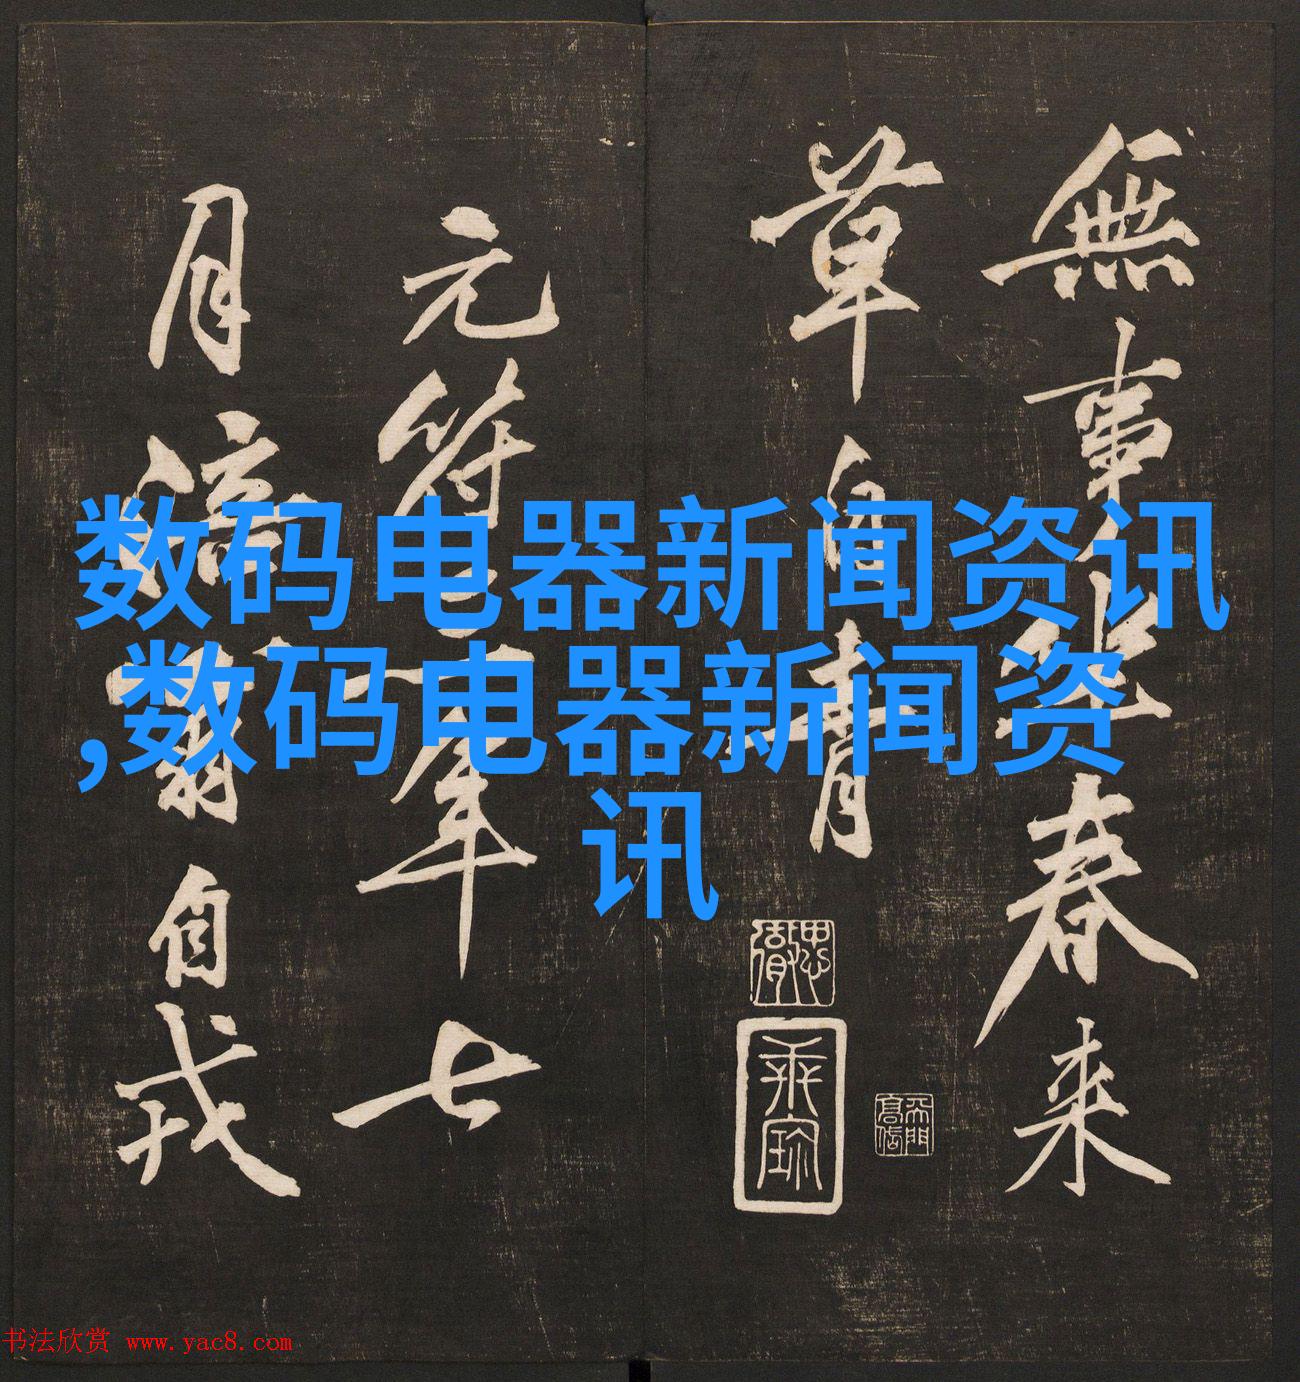 無事坐春来
草自青
元符三年七
月涪翁自戎
数码电器新闻资讯
,数码电器新闻资
讯
书法欣赏 www.yac8.com